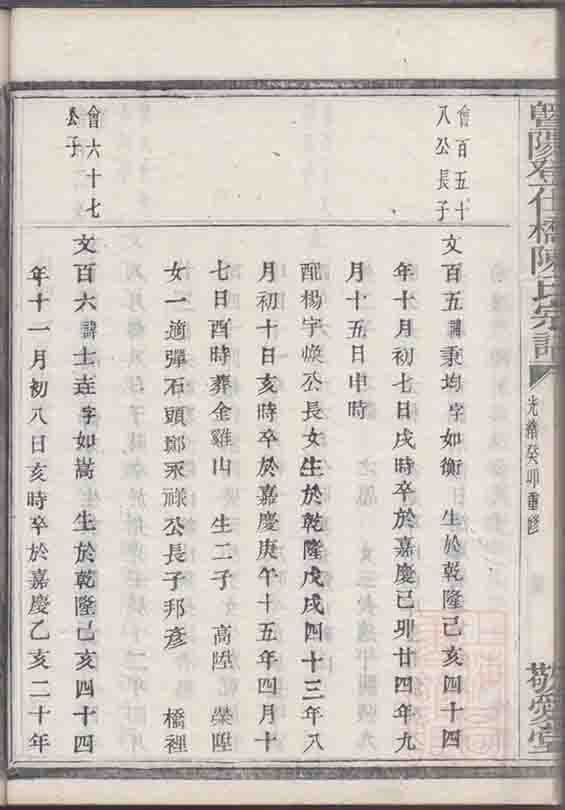 暨陽登仕橋陳氏宗譜
光緒癸卯重修
敬愛堂
會百五十
八公長子
文百五諱秉均字如衡　生於乾隆己亥四十四
年十月初七日戌時卒於嘉慶己卯廿四年九
月十五日申時
配楊宇煥公長女生於乾隆戊戌四十三年八
月初十日亥時卒於嘉慶庚午十五年四月十
七日酉時葬金雞山　生二子　高陞　榮陞
女一適彈石頭鄭永祿公長子邦彥　橋裡
會六十七
公子
文百六諱士連字如嵩　生於乾隆己亥四十四
年十一月初八日亥時卒於嘉慶乙亥二十年